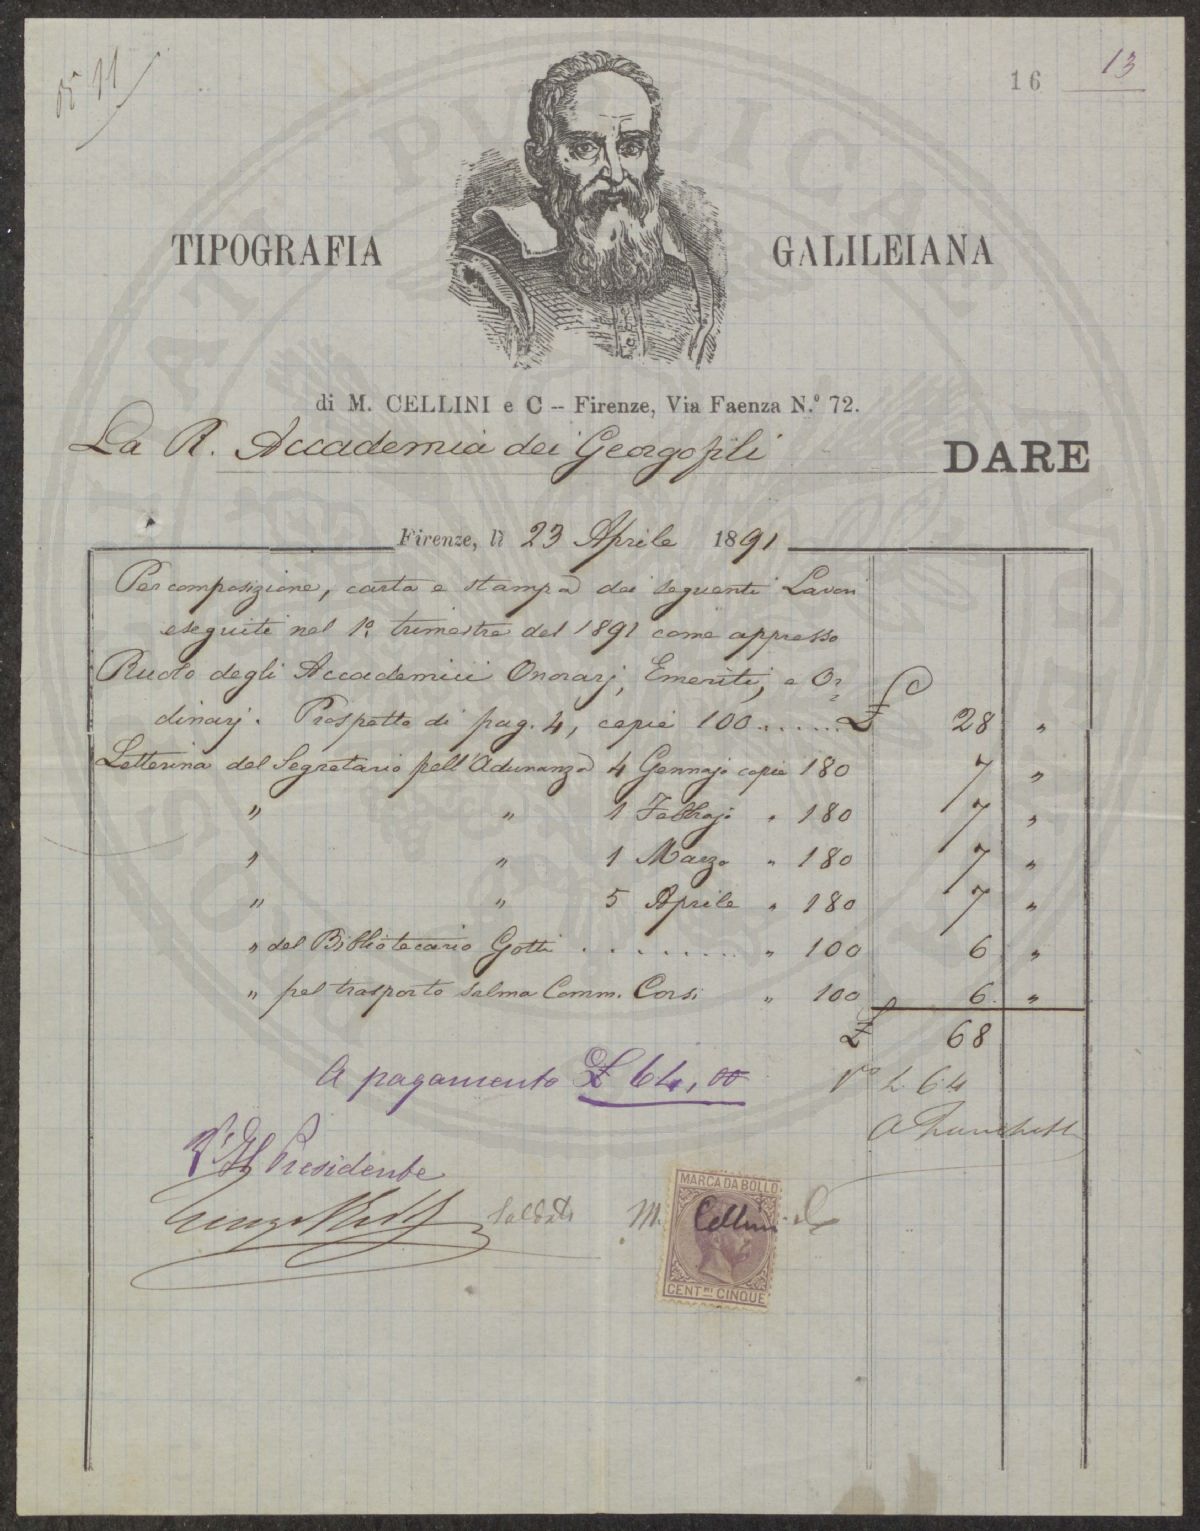 N° 11
16
13
TIPOGRAFIA GALILEIANA
di M. CELLINI e C – Firenze, Via Faenza N.° 72.
La R. Accademia dei Georgofili DARE
Firenze, lì 23 Aprile 1891
Per composizione, carta e stampa dei seguenti Lavori
eseguiti nel 1° trimestre del 1891 come appresso
Ruolo degli Accademici Onorarj, Emeriti, e Or-
dinarj. Prospetto di pag. 4, copie 100 ...... £ 28 "
Letterina del Segretario pell'Adunanza 4 Gennajo copie 180 7 "
" " 1 Febbrajo " 180 7 "
" " 1 Marzo " 180 7 "
" " 5 Aprile " 180 7 "
" del Bibliotecario Gotti ........ " 100 6 "
" pel trasporto salma Comm. Corsi " 100 6 "
£ 68
A pagamento £ 64,00
V° L 64
V° Il Presidente
Saldato
M. Cellini e C
MARCA DA BOLLO
CENT.MI CINQUE